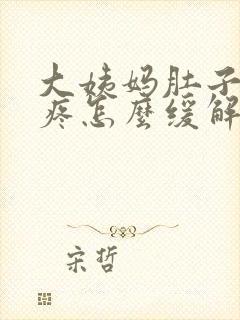 大姨妈肚子
疼怎麼缓解
宋哲